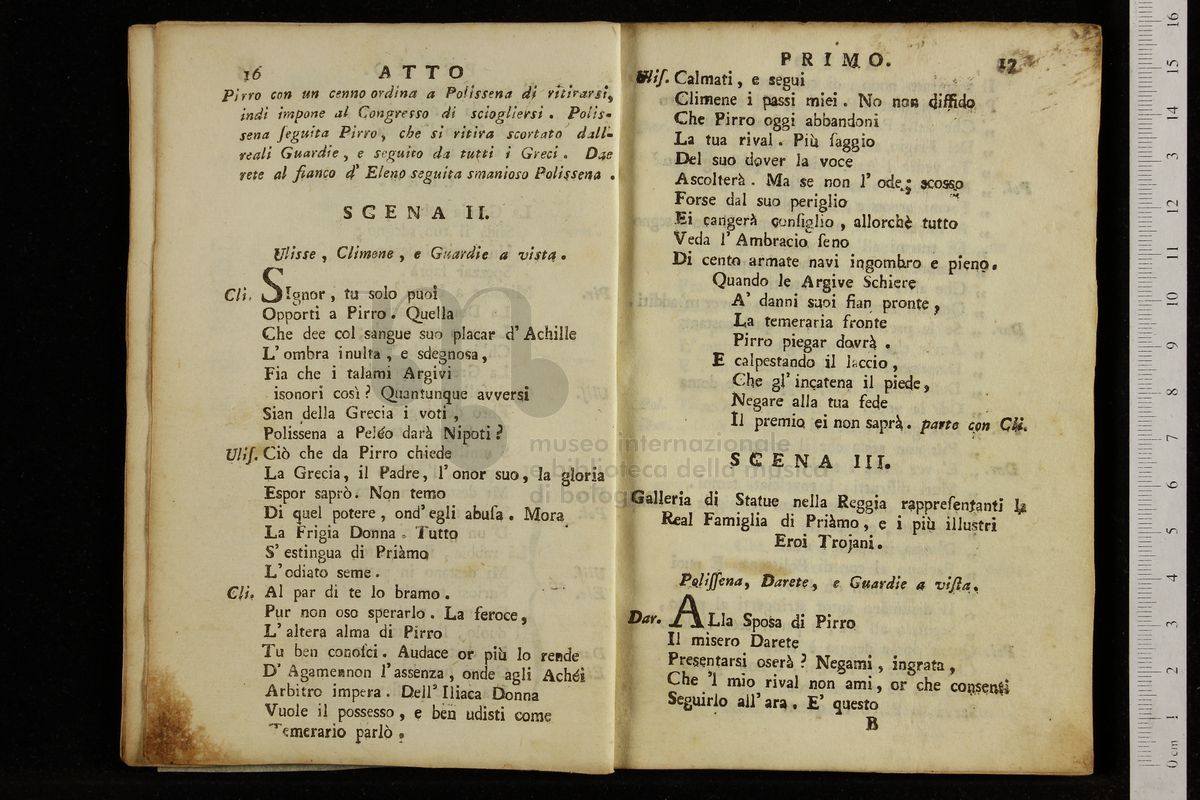 16 ATTO
Pirro con un cenno ordina a Polissena di ritirarsi,
indi impone al Congresso di sciogliersi. Polis-
sena seguita Pirro, che si ritira scortato dall-
reali Guardie, e seguito da tutti i Greci. Dae
rete al fianco d' Eleno seguita smanioso Polissena.
SCENA II.
Ulisse, Climene, e Guardie a vista.
Cli. SIgnor, tu solo puoi
Opporti a Pirro. Quella
Che dee col sangue suo placar d' Achille
L' ombra inulta, e sdegnosa,
Fia che i talami Argivi
isonori così? Quantunque avversi
Sian della Grecia i voti,
Polissena a Peléo darà Nipoti?
Ulis. Ciò che da Pirro chiede
La Grecia, il Padre, l' onor suo, la gloria
Espor saprò. Non temo
Di quel potere, ond' egli abusa. Mora
La Frigia Donna. Tutto
S' estingua di Priàmo
L' odiato seme.
Cli. Al par di te lo bramo.
Pur non oso sperarlo. La feroce,
L' altera alma di Pirro
Tu ben conosci. Audace or più lo rende
D' Agamennon l' assenza, onde agli Achéi
Arbitro impera. Dell' Iliaca Donna
Vuole il possesso, e ben udisti come
Temerario parlò.
PRIMO. 17
Ulis. Calmati, e segui
Climene i passi miei. No non diffido
Che Pirro oggi abbandoni
La tua rival. Più saggio
Del suo dover la voce
Ascolterà. Ma se non l' ode; scosso
Forse dal suo periglio
Ei cangerà consiglio, allorchè tutto
Veda l' Ambracio seno
Di cento armate navi ingombro e pieno.
Quando le Argive Schiere
A' danni suoi fian pronte,
La temeraria fronte
Pirro piegar dovrà.
E calpestando il laccio,
Che gl' incatena il piede,
Negare alla tua fede
Il premio ei non saprà. parte con Cli.
SCENA III.
Galleria di Statue nella Reggia rappresentanti la
Real Famiglia di Priàmo, e i più illustri
Eroi Trojani.
Polissena, Darete, e Guardie a vista.
Dar. ALla Sposa di Pirro
Il misero Darete
Presentarsi oserà? Negami, ingrata,
Che 'l mio rival non ami, or che consenti
Seguirlo all' ara. E' questo
B
museo internazionale
e biblioteca della musica
di bologna
0 cm 1 2 3 4 5 6 7 8 9 10 11 12 13 14 15 16